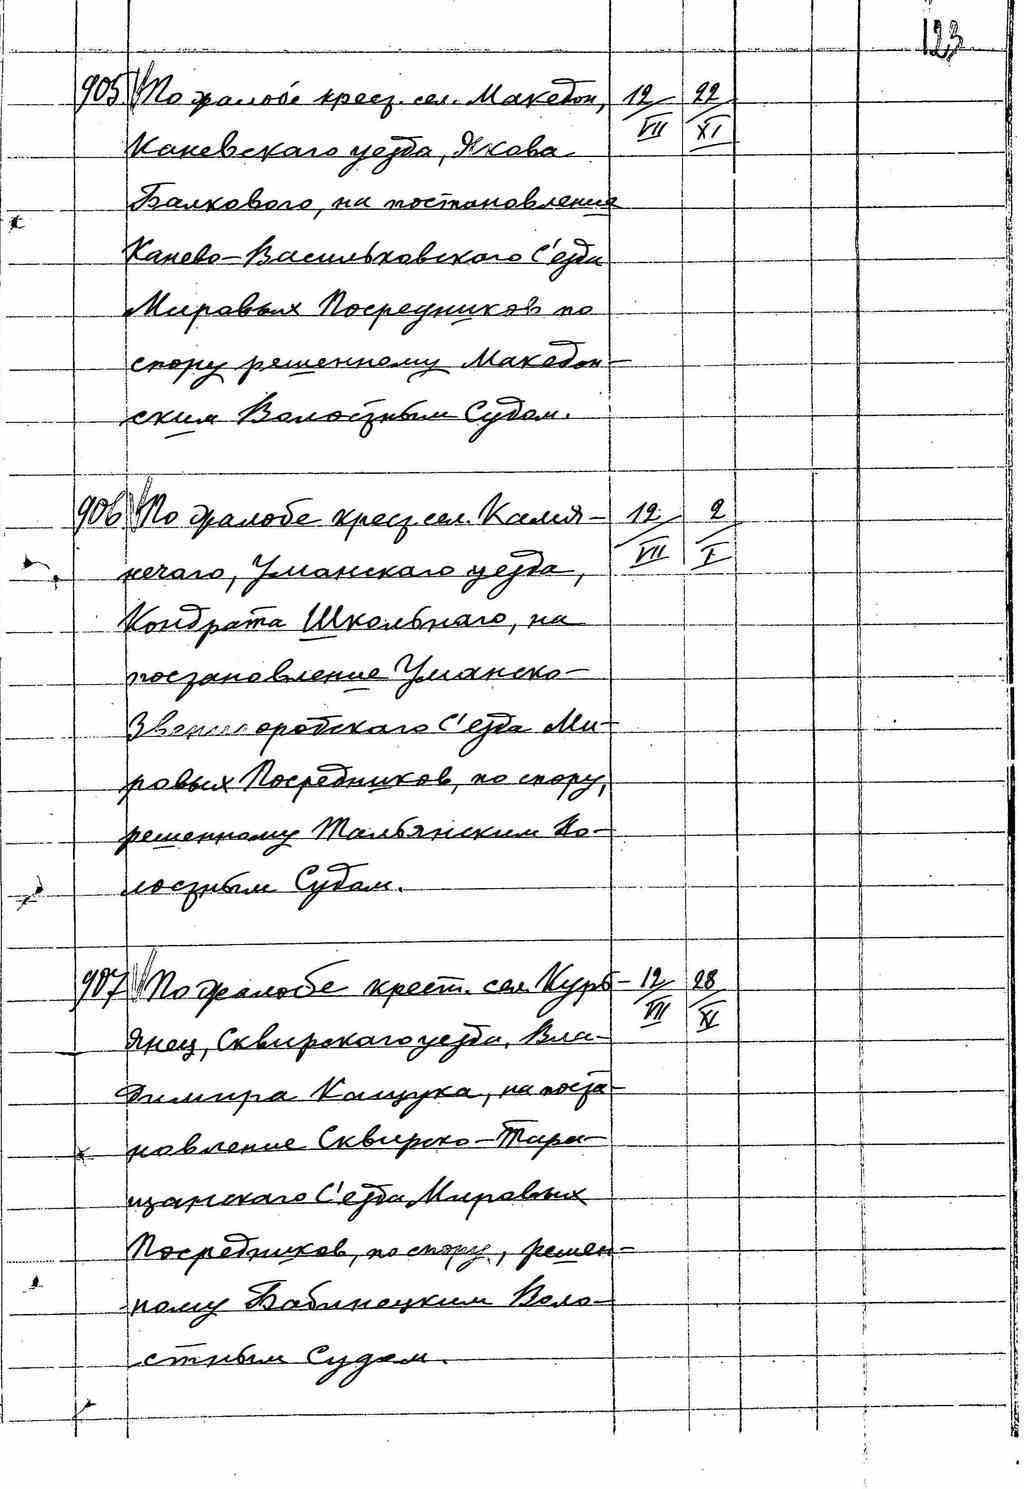 123
905 По жалобе крест. сел. Македон, 12/VII 22/XI
Каневскаго уезда, Якова
Балкового, на постановление
Канево-Васильковского С'езда
Мировых Посредников по
спору решенному Македон-
ским Волостным Судом.
906 По жалобе крест. сел. Камя- 12/VII 2/I
нечаго, Уманскаго уезда,
Кондрата Школьнаго, на
постановление Уманско-
Звенигородскаго С'езда Ми-
ровых Посредников, по спору,
решенному Тальянским Во-
лостным Судом.
907 По жалобе крест. сел. Курь- 12/VII 28/XI
янец, Сквирскаго уезда, Вла-
димира Кащука, на поста-
новление Сквирско-Тара-
щанскаго С'езда Мировых
Посредников, по спору, решен-
ному Бабинецким Воло-
стным Судом.